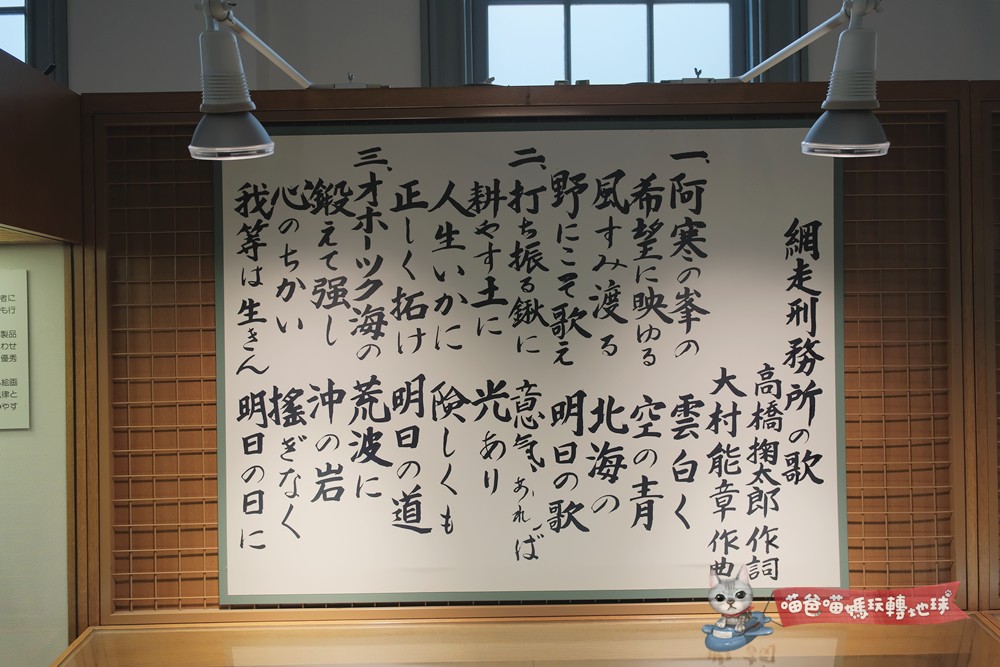 網走刑務所の歌
高橋掬太郎 作詞
大村能章 作曲
一、阿寒の峯の 雲白く
希望に映ゆる 空の青
風すみ渡る 北海の
野にこそ歌え 明日の歌
二、打ち振る鍬に 意気あれば
耕やす土に 光あり
人生いかに 険しくも
正しく拓け 明日の道
三、オホーツク海の 荒波に
鍛えて强し 沖の岩
心のちかい 搖ぎなく
我等は生きん 明日の日に
者に
も行
製品
わせ
優秀
絵画
律と
やす
喵爸喵媽玩轉地球